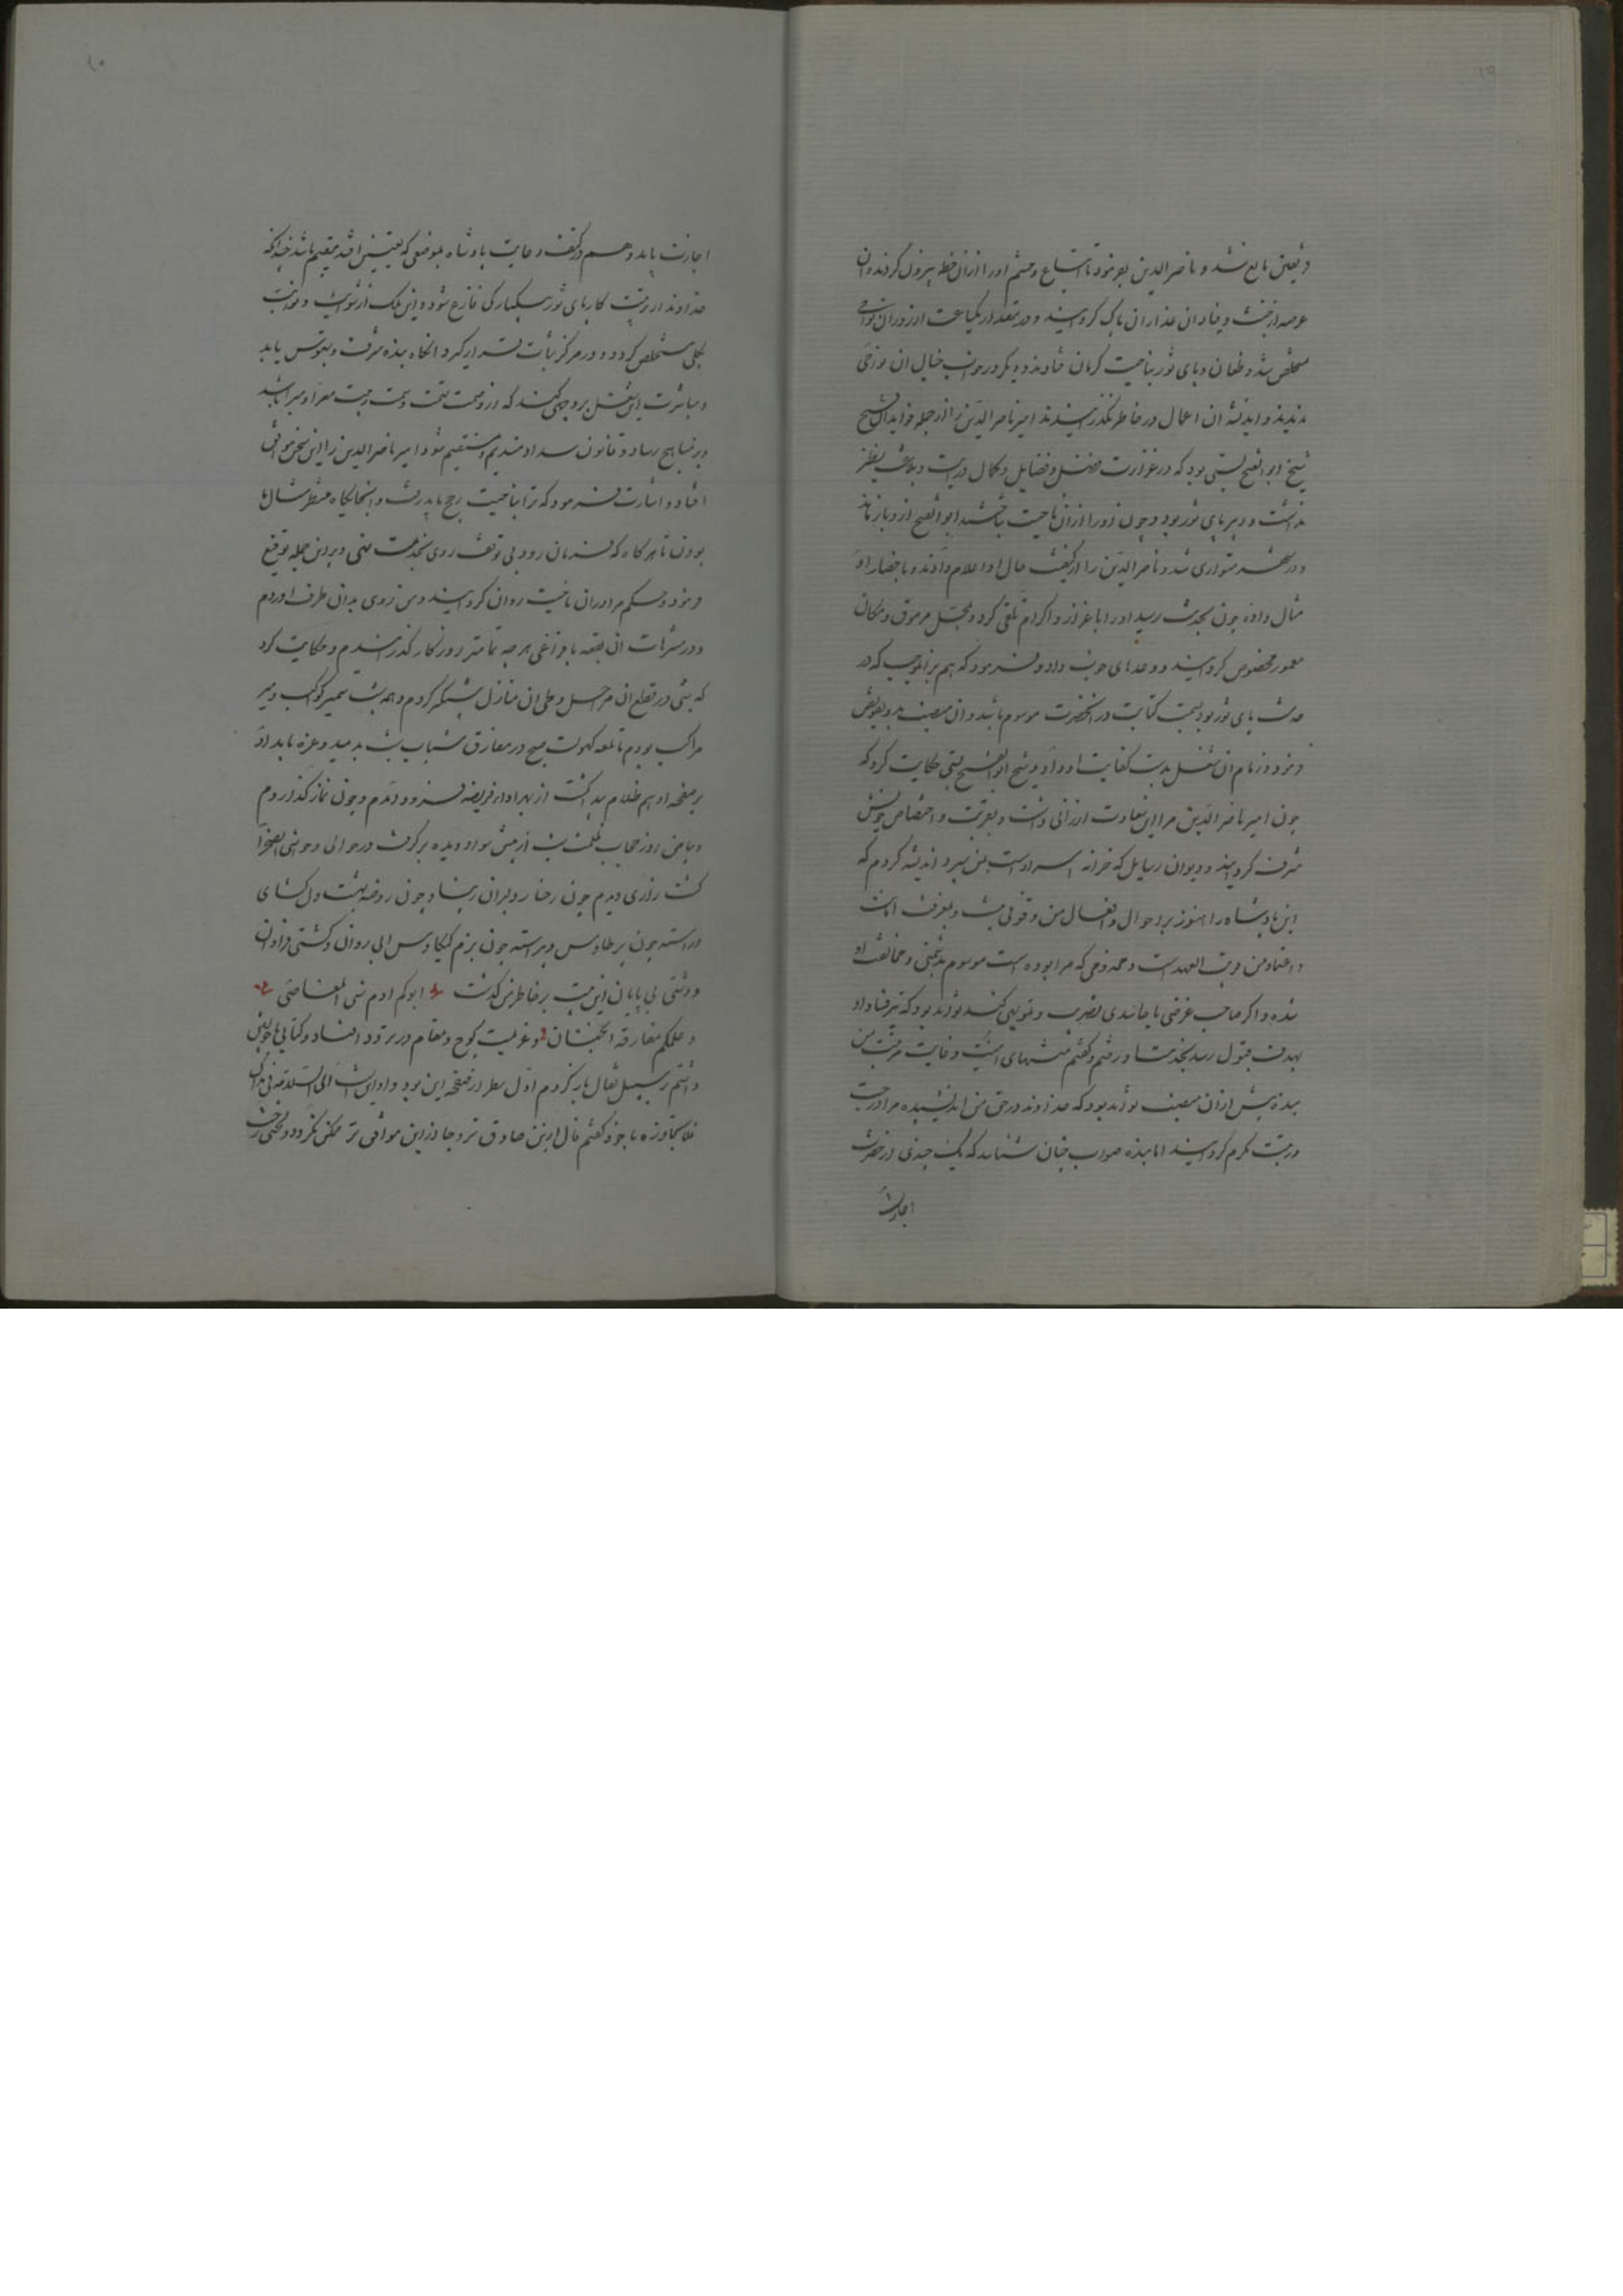 و ناصر الدین بفرمود تا اتباع و حشم او را ازان خطه بیرون کردند و ان
عرصه از خبث و فساد ان غداران پاک کردانیدند و در مقدار یکساعت از روز ان نواحی
مستخلص شد و طغان و بای توز بناحیت کرمان افتادند و دیکر در خواب خیال ان نواحی
ندیدند و اندیشه ان اعمال در خاطر نکذرانیدند امیر ناصر الدین را از جمله فواید ان فتح
شیخ ابو الفتح بستی بود که در غزارت فضل و فضایل و کمال درایت و بلاغت نظیر
نداشت و دبیر بای توز بود و چون او را ازان ناحیت ابو الفتح ازو باز ماند
و در شهر متواری شد و ناصر الدین را از کیفیت حال او اعلام دادند و باحضار او
مثال داد چون بخدمت رسید او را باعزاز و اکرام تلقی کرد و بمحل مرموق و مکان
معمور مخصوص کردانید و وعدهای خوب داد و فرمود که هم بر ان موجب که در
خدمت بای توز بود بسمت کتابت در انحضرت موسوم باشد و ان منصب بدو تفویض
فرمود و زمام ان شغل بدست کفایت او داد و شیخ ابو الفتح بستی حکایت کرد که
چون امیر ناصر الدین مرا این سعادت ارزانی داشت و بقربت و اختصاص خویش
مشرف کردانید و دیوان رسایل که خزانه اسرارست بمن سپرد اندیشه کردم که
این پادشاه را هنوز بر احوال و افعال من وقوفی نیست و بمعرفت امانت
و اعتماد من قریب العهدست و مخدومی که مرا بوده است موسوم بدشمنی و مخالفت او
شده و اکر صاحب غرضی یا حاسدی تضریب و تمویهی کند تواند بود که تیر فساد او
بهدف قبول رسد بخدمت او رفتم و کفتم منتهای امنیت و غایت مرتبت من
بنده بیش ازان منصب نتواند بود که خداوند در حق من اندیشیده مرا درجت
و مرتبت مکرم کردانید اما بنده صواب چنان شناسد که یک چندی از حضرت
اجازت
اجازت یابد و هم در کنف رعایت پادشاه بموضعی که تعیین افتد مقیم باشد چندانکه
خداوند از ترتیب کار بای توز بیکبارکی فارغ شود و این ملک از شوایب و نوایب
بکلی مستخلص کردد و در مرکز ثبات قرار کیرد انکاه بنده بشرف دستبوس یابد
و مباشرت این شغل بر وجهی کند که از وصمت تهمت و سمت ریبت معرا و مبرا باشد
و بر مناهج رشاد و قانون سداد مستدیم و مستقیم شود امیر ناصر الدین را این سخن موافق
افتاد و اشارت فرمود که ترا بناحیت رخج باید رفت و انجایکاه منتظر مثال ما
بودن تا هر کاه که فرمان رود بی توقف روی بخدمت نهی و برین جمله توقیع
فرمود و حکم مرا بدان ناحیت روان کردانیدند و من روی بدان طرف اوردم
و در متنزهات ان بقعه بافراغی هر چه تمامتر روزکار کذرانیدم و حکایت کرد
که شبی در قطع ان مراحل و طی ان منازل شبکیر کردم و همه شب سمیر کواکب و سیر
مراکب بودم تا طلعه کهولت صبح در مفارق شباب شب بدمید و غره بامداد
بر صفحه ادهم ظلام پیدا کشت از بهر اداء فریضه فرود امدم و چون نماز کذاردم
و بیاض روز حجاب ظلمت شب از پیش سواد دیده برکرفت در حوالی و حواشی ان صحرا
کشت زاری دیدم چون رخسار دلبران زیبا و چون روضه بهشت دلکشای
اراسته چون پر طاوس و پیراسته چون بزم کیکاوس ابی روان و کشتی فراوان
و دشتی بی پایان این بیت بر خاطر من کذشت ابوکم ادم سن المعاصی
و علمکم مفارقة الجنان و عزیمت کوچ و مقام در تردد افتاد و کتابی با خویش
داشتم بر سبیل تفال باز کردم اول سطر از صفحه این بود و اذا انتهیت الی السلامة فی مداک
فلا تجاوزه با خود کفتم فال ازین صادق تر و جا ازین موافق تر ممکن نکردد